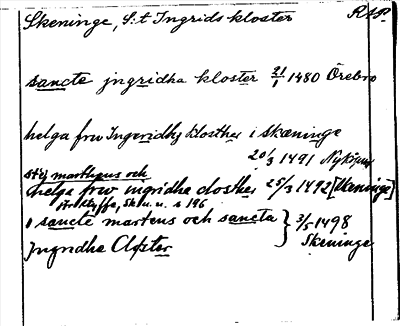 Skeninge, S:t Ingrids kloster RAP.
sancte jngridha kloster 21/1 1480 Örebro
helga frw Ingeridhz klosther i skæninge
20/3 1491 Nyköping
sthj marthens och
helga frw ingridha closther 25/3 1492 [Skeninge]
Sk. u. s 196
i sancte martens och sancta } 3/5 1498
Jngridha Closter Skeninge